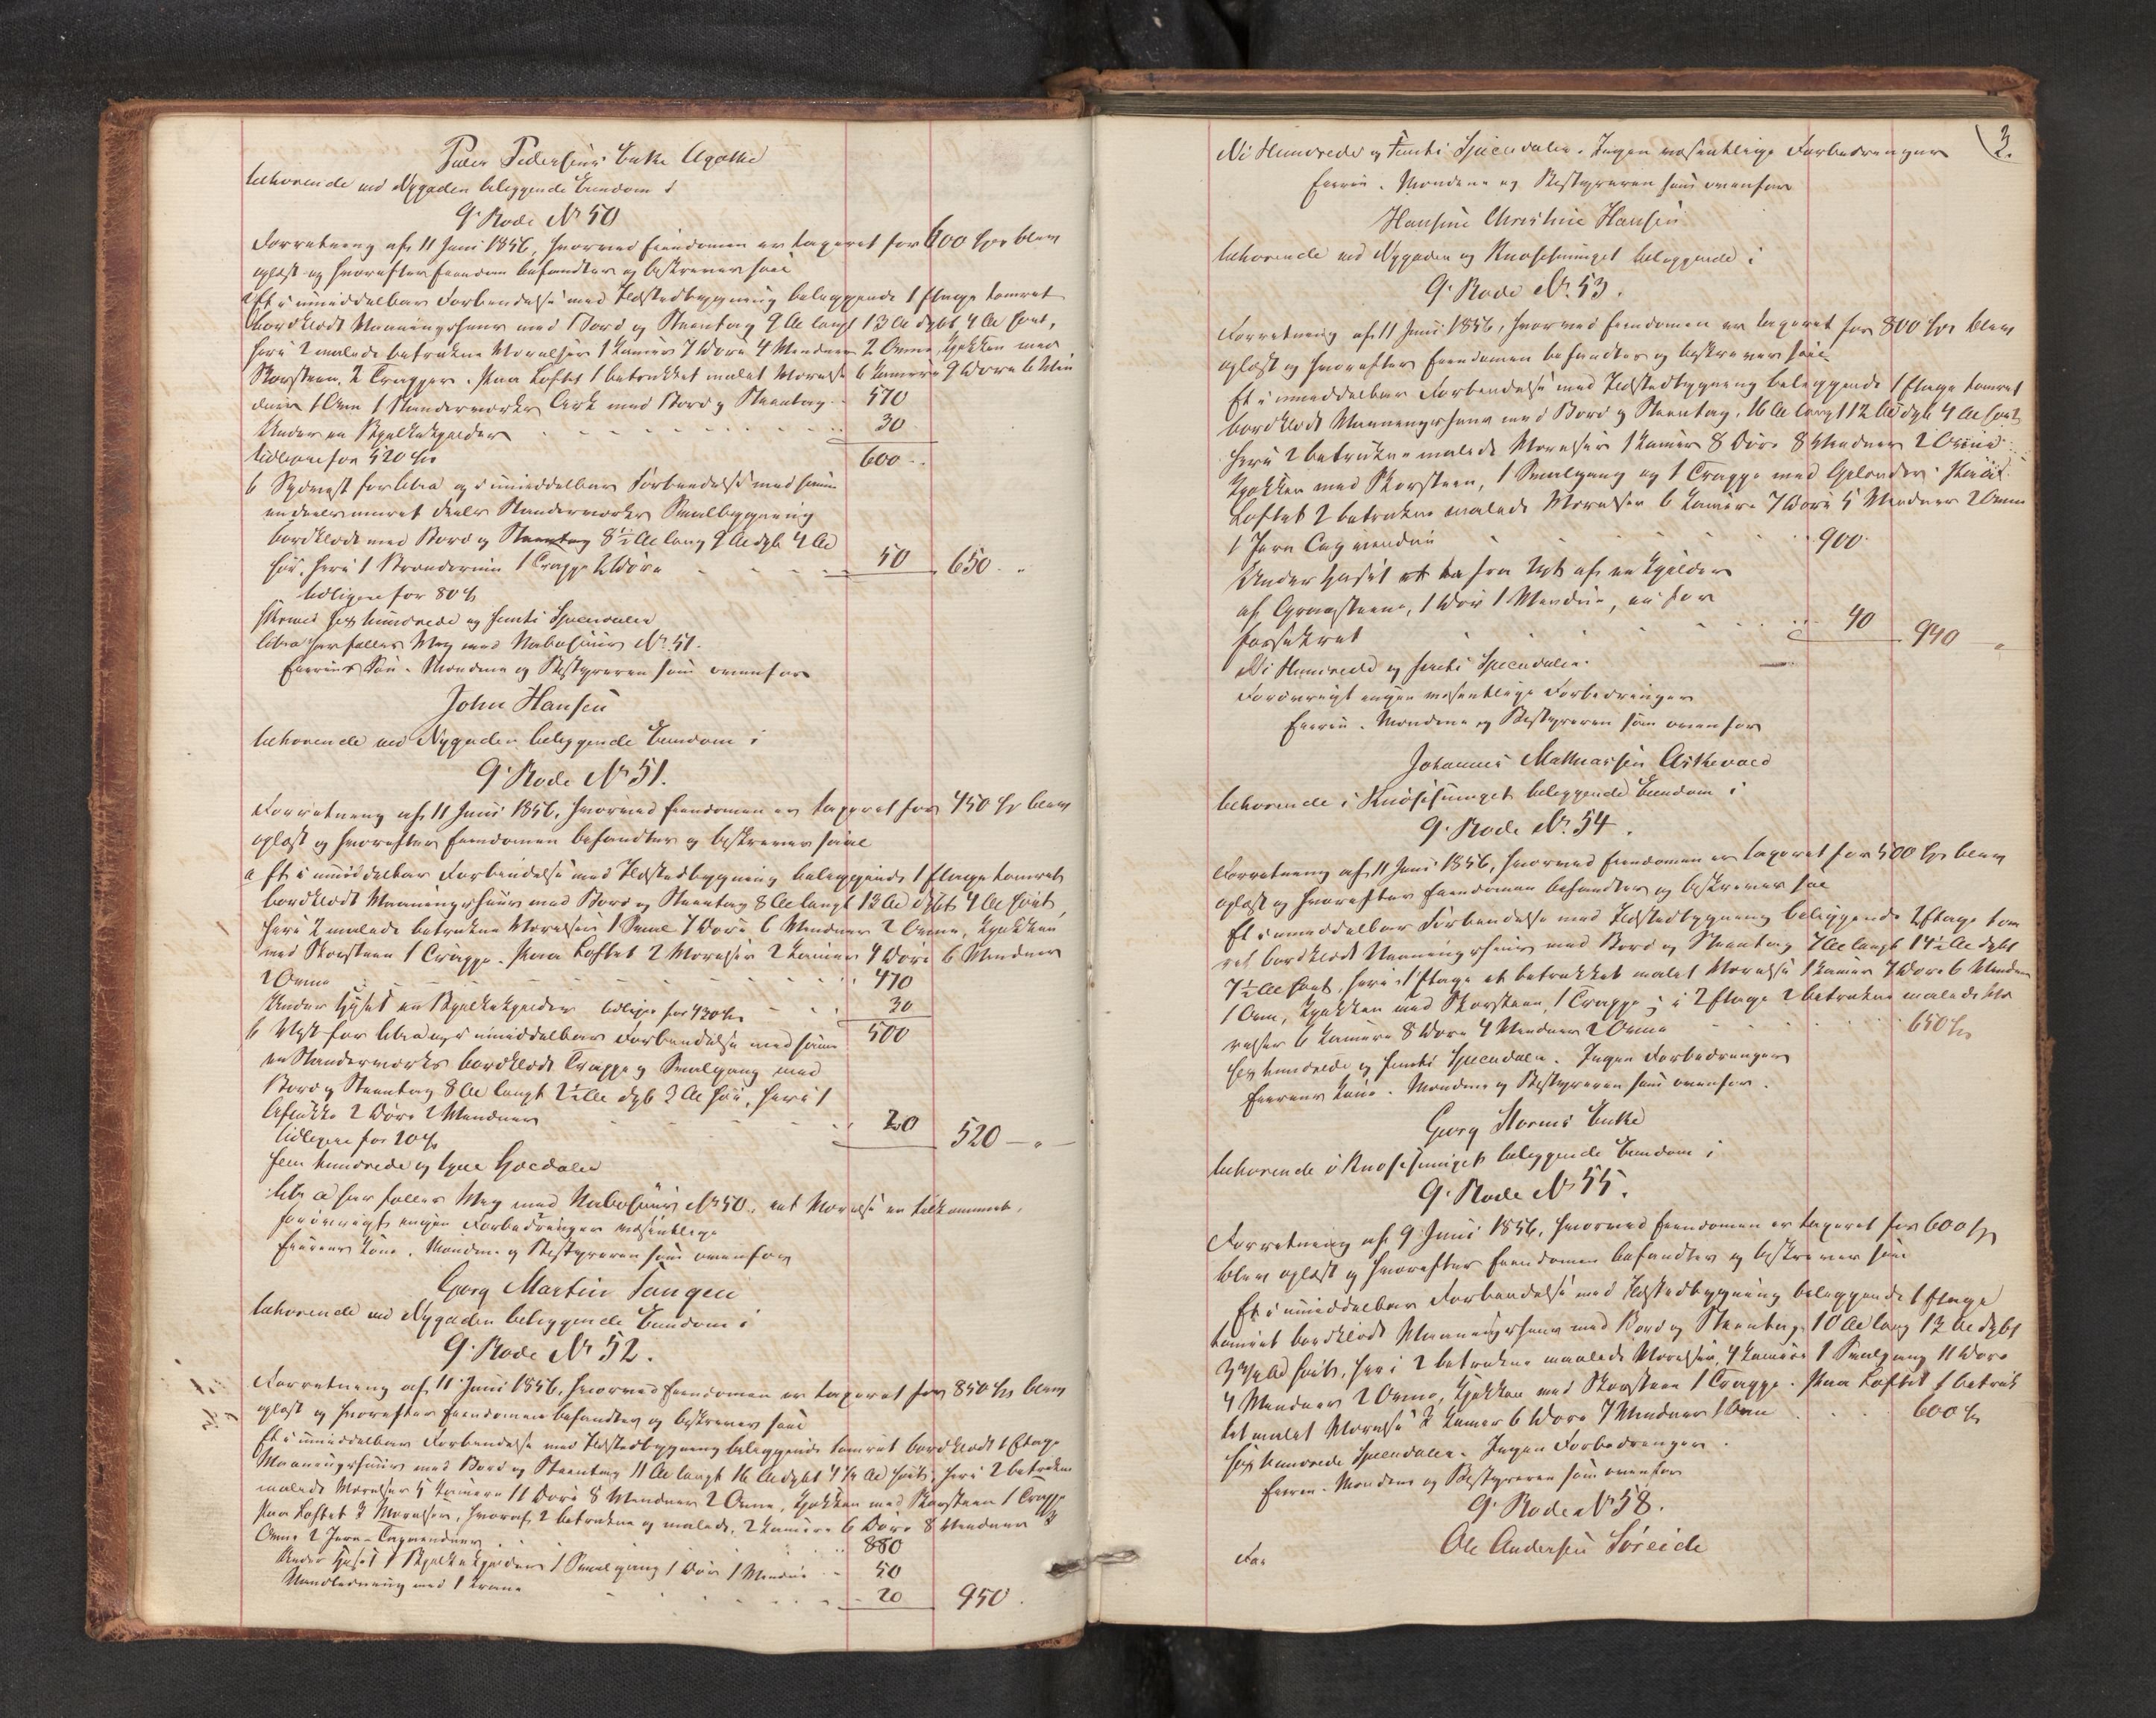 Peder Pedersens Enke Agathe
tilhørende ved Nygaden beliggende Eiendom i
9. Rode No 50
Forretning af 11 Juni 1856, hvorved Eiendommen er taxeret for 600 Spd blev
oplæst og hvorefter Eiendommen befandtes og beskrives saa
a Et i umiddelbar Forbindelse med Ildstedbygning beliggende 1 Etage tømret
bordklædt Vaaningshuus med Bord og Steentag 9 Al langt 13 Al dybt, 4 Al høit,
heri 2 malede betrukne Værelser 1 Kamer 7 Døre 4 Vinduer 2 Ovne, Kjøkken med
Skorsteen, 2 Trapper. Paa Loftet 1 betrukket malet Værelse 6 Kamere 9 Døre 6 Vin
duer 1 Ovn 1 Standerværks Ark med Bord og Steentag 570
Under en Kjælder 30
tidligere for 520 Spd 600
b Sydvest for litra a og i umiddelbar Forbindelse med samme
en deels muret deels Standerværks Smalbygning
bordklædt med Bord og Steentag 8½ Al lang 9 Al dyb 4 Al
høi, heri 1 1 Trappe 2 Døre 50 650
tidligere for 80 Spd
skriver Sex hundrede og femti Speciedaler
litra a har fælles Væg med Nabohuus No 51.
Eierens Søn. Mændene og Bestyreren som ovenfor
John Hansen
tilhørende ved Nygaden beliggende Eiendom i
9. Rode No 51.
Forretning af 11 Juni 1856, hvorved Eiendommen er taxeret for 450 Spd blev
oplæst og hvorefter Eiendommen befandtes og beskrives saa
a Et i umiddelbar Forbindelse med Ildstedbygning beliggende 1 Etage tømret
bordklædt Vaaningshuus med Bord og Steentag 8 Al langt 13 Al dybt 4 Al høit,
heri 2 malede betrukne Værelser 1 Smal 7 Døre 6 Vinduer 2 Ovne, Kjøkken
med Skorsteen 1 Trappe. Paa Loftet 2 Værelser 2 Kamere 4 Døre 6 Vinduer
2 Ovne 470
Under Huset en Kjælder tidligere for 430 Spd 30
b Vest for litra a og i umiddelbar Forbindelse med samme 500
en Standerværks bordklædt Trappe og Smalgang med
Bord og Steentag 8 Al langt 2½ Al dyb 3 Al høi, heri 1
Aflukke 2 Døre 2 Vinduer 20 520
tidligere for 20 Spd
Fem hundrede og tyve Speciedaler
litr a har fælles Væg med Nabohuus No 50. eet Værelse er tilkommet,
forøvrigt ingen Forbedringer væsentlige
Eierens Kone. Mændene og Bestyreren som ovenfor
Georg Martin Tangen
tilhørende ved Nygaden beliggende Eiendom i
9. Rode No 52.
Forretning af 11 Juni 1856, hvorved Eiendommen er taxeret for 850 Spd blev
oplæst og hvorefter Eiendommen befandtes og beskrives saa
Et i umiddelbar Forbindelse med Ildstedbygning beliggende tømret bordklædt 1 Etage
Vaaningshuus med Bord og Steentag 11 Al langt 16 Al dybt 4½ Al høit, heri 2 betrukne
malede Værelser 5 Kamere 11 Døre 8 Vinduer 2 Ovne, Kjøkken med Skorsteen 1 Trappe
Paa Loftet 3 Værelser, hvoraf 2 betrukne og malede, 2 Kamere 6 Døre 8 Vinduer
Ovne 2 Jern-Tagvinduer 880
Under Huset 1 Kjælder 1 Smalgang 1 Dør 1 Vindue 50
Vandledning med 1 Krane 20 950
3.
Ni Hundrede og Femti Speciedaler. Ingen væsentlige Forbedringer
Eieren. Mændene og Bestyreren som ovenfor
Hansine Christine Hansen
tilhørende ved Nygaden og Knøsesmuget beliggende i
9. Rode No. 53.
Forretning af 11 Juni 1856, hvorved Eiendommen er taxeret for 800 Spd blev
oplæst og hvorefter Eiendommen befandtes og beskrives saa
Et i umiddelbar Forbindelse med Ildstedbygning beliggende 1 Etage tømret
bordklædt Vaaningshuus med Bord og Steentag. 16 Al langt 12 Al dyb 4 Al høit
heri 2 betrukne malede Værelser 1 Kamer 8 Døre 8 Vinduer 2 Ovne
Kjøkken med Skorsteen, 1 Smalgang og 1 Trappe med Gelænder. Paa
Loftet 2 betrukne malede Værelser 6 Kamere 7 Døre 5 Vinduer 2 Ovne
1 Jern Tagvindue 900
Under Huset af en Kjælder
af Graasteen, 1 Dør 1 Vindue, er for
forsikret 40 940
Ni Hundrede og firti Speciedaler.
Forøvrigt ingen væsentlige Forbedringer
Eieren. Mændene og Bestyreren som ovenfor
Johannes Mathiassen Askevold
tilhørende i Knøsesmuget beliggende Eiendom i
9. Rode No. 54.
Forretning af 11 Juni 1856, hvorved Eiendommen er taxeret for 500 Spd blev
oplæst og hvorefter Eiendommen befandtes og beskrives saa
Et i umiddelbar Forbindelse med Ildstedbygning beliggende 2 Etage tøm
ret bordklædt Vaaningshuus med Bord og Steentag 7 Al langt 14½ Al dybt
7½ Al høit, heri i 1 Etage et betrukket malet Værelse 1 Kamer 7 Døre 6 Vinduer
1 Ovn, Kjøkken med Skorsteen, 1 Trappe; i 2 Etage 2 betrukne malede Væ
relser 6 Kamere 8 Døre 4 Vinduer 2 Ovne 650 Spd
Sex hundrede og femti Speciedaler. Ingen Forbedringer
Eierens Kone. Mændene og Bestyreren som ovenfor.
Georg Storms Enke
tilhørende i Knøsesmuget beliggende Eiendom i
9. Rode No 55.
Forretning af 9 Juni 1856, hvorved Eiendommen er taxeret for 600 Spd
blev oplæst og hvorefter Eiendommen befandtes og beskrives saa
Et i umiddelbar Forbindelse med Ildstedbygning beliggende 1 Etage
tømret bordklædt Vaaningshuus med Bord og Steentag 10 Al lang 12 Al dybt
3¾ Al høit, heri 2 betrukne malede Værelser, 4 Kamere 1 Smalgang 11 Døre
4 Vinduer 2 Ovne, Kjøkken med Skorsteen 1 Trappe. Paa Loftet 1 betruk
ket malet Værelse 2 Kamer 6 Døre 7 Vinduer 1 Ovn 600 Spd
Sex hundrede Speciedaler. Ingen Forbedringer.
Eieren. Mændene og Bestyreren som ovenfor
9. Rode No 58.
Ole Andersen Søreide
For